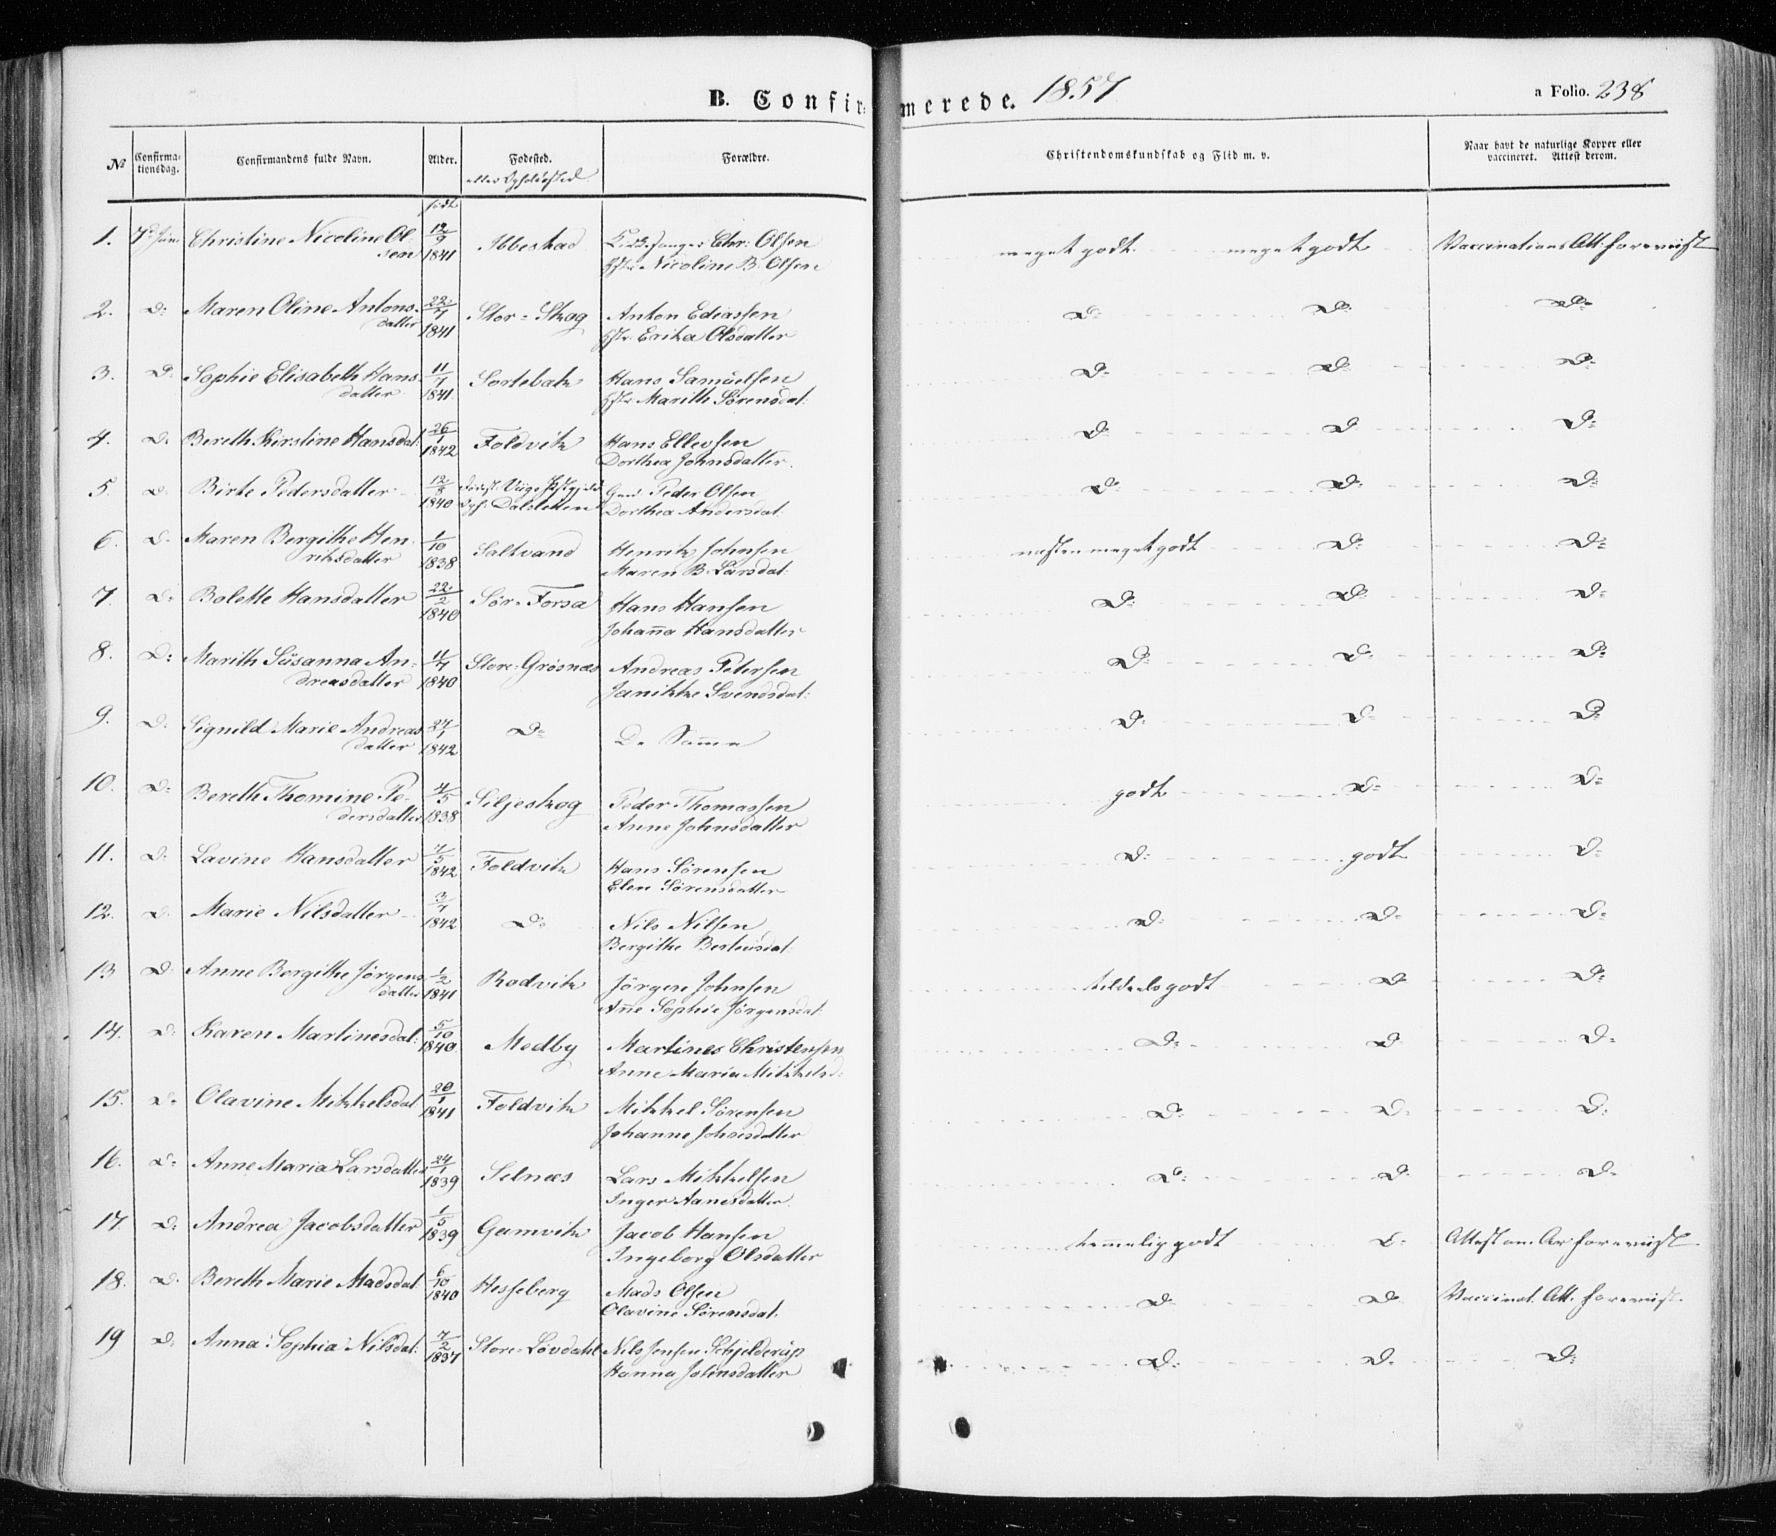 B. Confirmerede. 1857
a Folio. 238
No
Confirmationsdag.
Confirmandens fulde Navn.
Alder.
Fødested.
Forældre.
Christendomskundskab og Flid m. v.
Naar havt de naturlige Kopper eller vaccineret. Attest derom.
født
1. Christine Nicoline Ol- 12/9 Ibbestad Chr: Olsen meget godt meget godt Vaccinations Att: foreviist
sen 1841 Nicoline B. Olsen
2. D: Maren Oline Antons- 22/7 Stor-Skog Anton Ediassen D: D: D:
datter 1841 Erika Olsdatter
3. D: Sophie Elisabeth Hans- 11/7 Sortebak Hans Samuelsen D: D: D:
datter 1841 Marith Sörensdat:
4. D: Bereth Kirstine Hansdat: 26/1 Foldvik Hans Ellevsen D: D D:
1842 Dorthea Johnsdatter.
5. D: Birte Pedersdatter 12/8 Peder Olsen D: D: D:
1840 Dalsletten Dorthea Andersdat:
6. D: Maren Bergithe Hen- 1/10 Saltvand Henrik Johnsen næsten meget godt D: D:
riksdatter 1838 Maren B. Larsdat:
7. D: Bolette Hansdatter 22/2 Sör-Forsa Hans Hansen D: D: D:
1840 Johanna Hansdatter
8. D: Marith Susanna An- 11/7 Store-Grösnæs Andreas Petersen D: D: D:
dreasdatter 1840 Janikke Svendsdat:
9. D: Signild Marie Andreas 27/1 D: De Samme D: D: D:
datter 1842
10. D: Bereth Thomine Pe- 4/5 Siljeskog Peder Thomassen godt D: D:
dersdatter 1838 Anne Johnsdatter
11. D: Lavine Hansdatter 4/5 Foldvik Hans Sörensen D: godt D:
1842 Elen Sörensdatter
12. D: Marie Nilsdatter 3/7 D: Nils Nilsen D: D: D:
1842 Bergithe
13 D: Anne Bergithe Jörgens 1/2 Rodvik Jörgen Johnsen tildeels godt D: D:
datter 1841 Anne Sophie Jörgensdat:
14. D: Karen Martinesdat: 5/10 Medby Martines Christensen D: D D:
1840 Anne Maria Mikkelsd:
15. D: Olavine Mikkelsdat 20/1 Foldvik Mikkel Sörensen D: D: D:
1841 Johanne Johnsdatter
16. D: Anne Maria Larsdatter 24/1 Selnæs Lars Mikkelsen D: D: D:
1839 Inger Aanesdatter
17. D: Andrea Jacobsdatter 1/5 Gamvik Jacob Hansen temmelig godt D: Attest om Ar foreviist
1839 Ingeborg Olsdatter
18. D: Bereth Marie Madsdat 6/10 Hesseberg Mads Olsen D: D: Vaccinat. Att. foreviist.
1840 Olavine Sörensdat:
19 D: Anna Sophia Nilsdat: 7/2 Store-Lövdahl Nils Jensen Schjelderup D: D: D:
1837 Hanna Johnsdatter